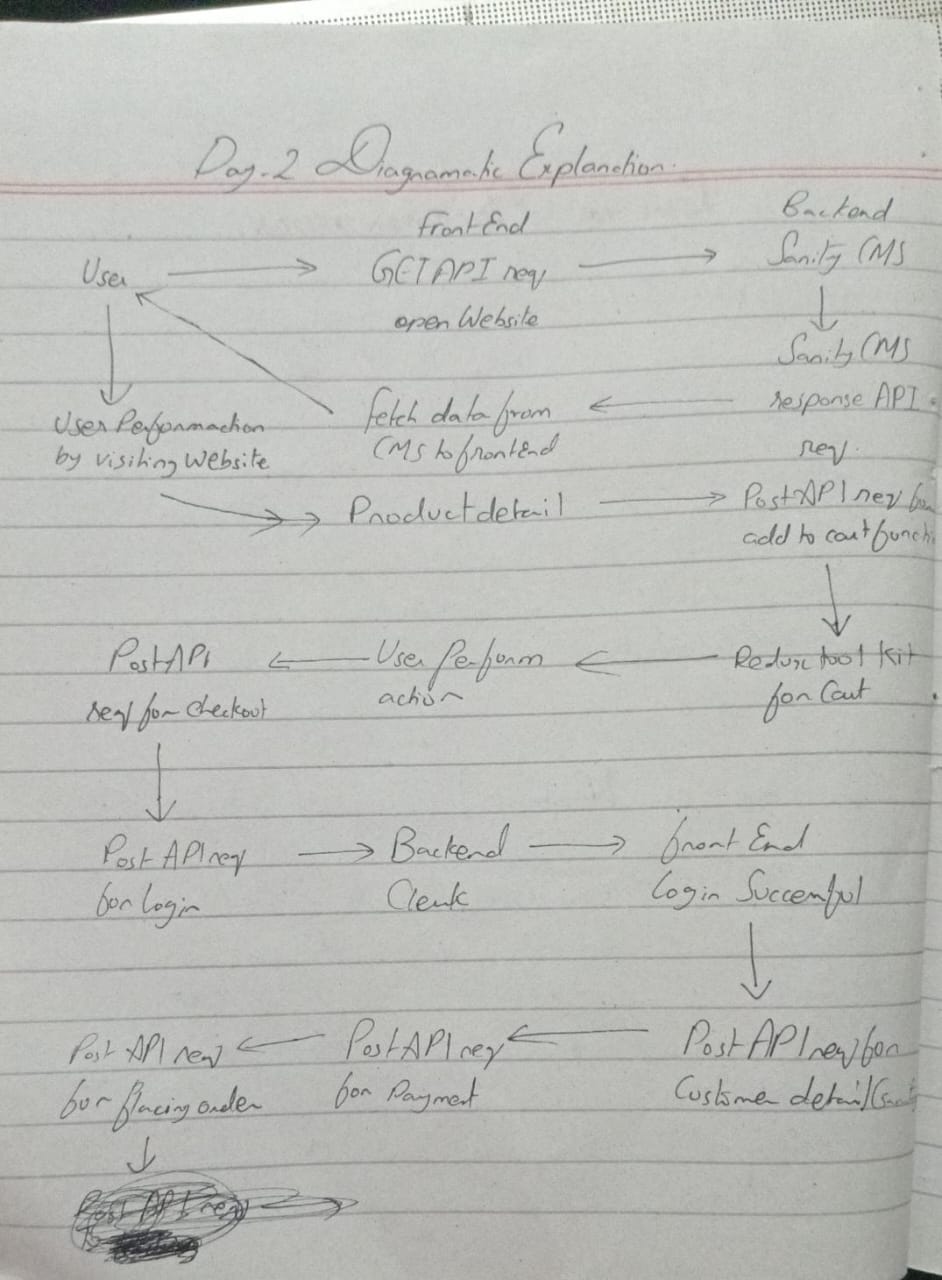 Day-2 Diagnamatic Explanction.
Front End
Backend
User
GET API req
Sanity CMS
open Website
Sanity CMS
response API
req.
fetch data from
CMS to frontend
User Performaction
by visiting Website
Product detail
Post API req for
add to cart functi
Redux tool kit
for Cart
User Perform
action
Post API
req for checkout
Post API req
for Login
Backend
Clerk
front End
Login Successful
Post API req for
Customer detail
Post API req
for Payment
Post API req
for placing order
Post API req